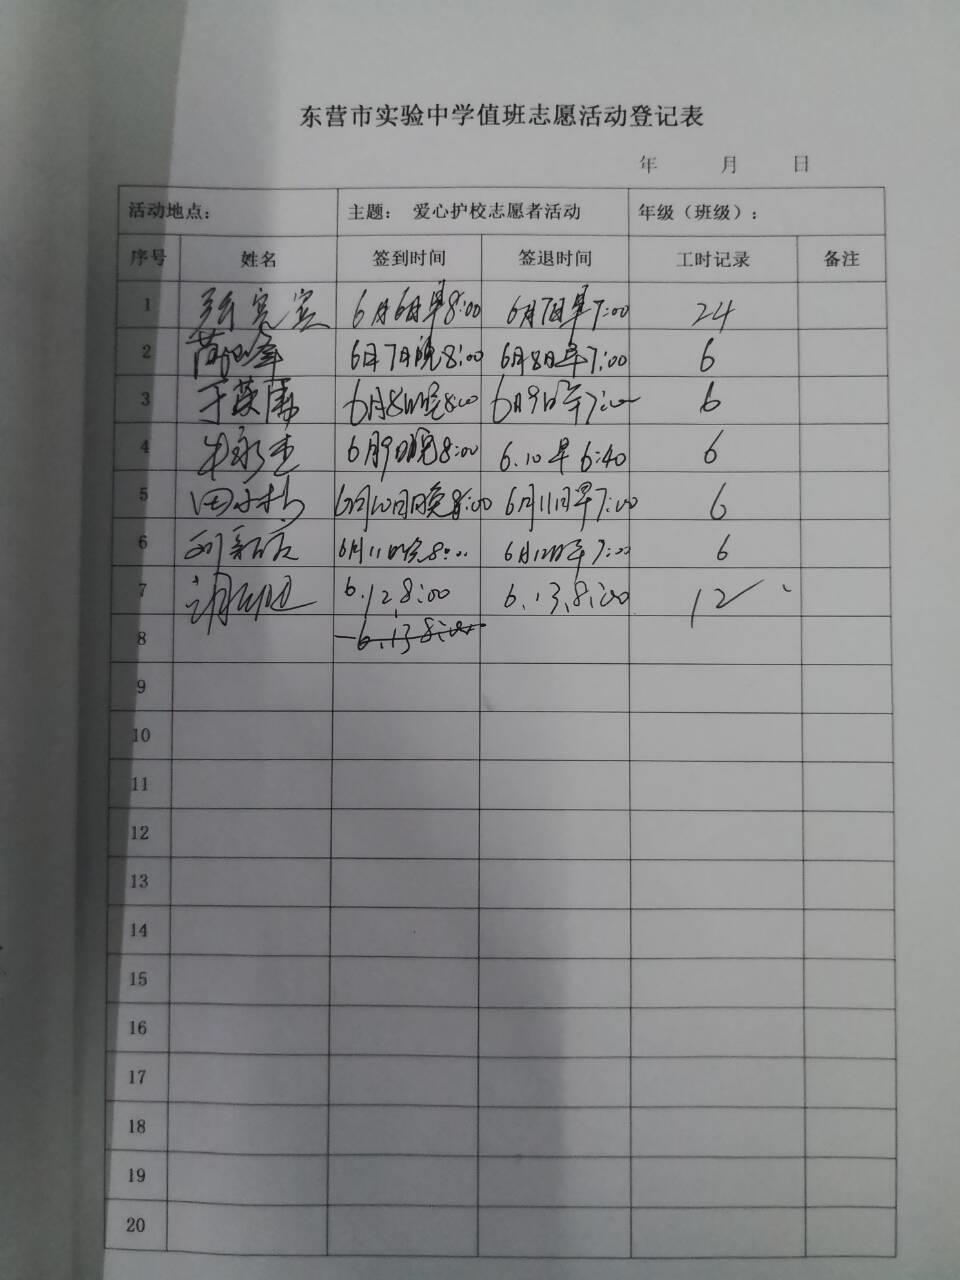 东营市实验中学值班志愿活动登记表
年 月 日
活动地点： 主题： 爱心护校志愿者活动 年级（班级）：
序号 姓名 签到时间 签退时间 工时记录 备注
1 6月6日早8:00 6月7日早7:00 24
2 6月7日晚8:00 6月8日早7:00 6
3 6月8日晚8:00 6月9日早7:00 6
4 牛永圭 6月9日晚8:00 6.10早6:40 6
5 6月10日晚8:00 6月11日早7:00 6
6 6月11日晚8:00 6月12日早7:00 6
7 6.12 8:00 6.13.8:00 12
8 6.13 8:00
9
10
11
12
13
14
15
16
17
18
19
20